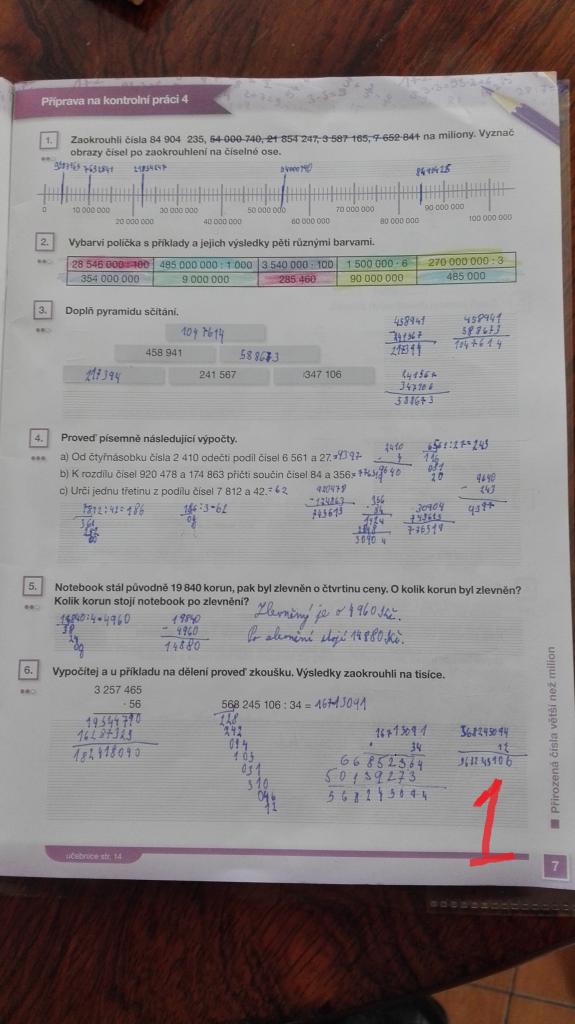 Příprava na kontrolní práci 4
1.
Zaokrouhli čísla 84 904 235, 54 000 740, 21 854 247, 3 587 165, 7 652 841 na miliony. Vyznač
obrazy čísel po zaokrouhlení na číselné ose.
0 10 000 000 30 000 000 50 000 000 70 000 000 90 000 000
20 000 000 40 000 000 60 000 000 80 000 000 100 000 000
2.
Vybarvi políčka s příklady a jejich výsledky pěti různými barvami.
28 546 000 : 100 485 000 000 : 1 000 3 540 000 · 100 1 500 000 · 6 270 000 000 : 3
354 000 000 9 000 000 285 460 90 000 000 485 000
3.
Doplň pyramidu sčítání.
1047614
458 941 588673
217394 241 567 347 106
458941
588673
1047614
241567
347106
588673
4.
Proveď písemně následující výpočty.
a) Od čtyřnásobku čísla 2 410 odečti podíl čísel 6 561 a 27. = 9397
b) K rozdílu čísel 920 478 a 174 863 přičti součin čísel 84 a 356.
c) Urči jednu třetinu z podílu čísel 7 812 a 42. = 62
6561:27=243
9640
- 243
9397
7812:42=186
186:3=62
5.
Notebook stál původně 19 840 korun, pak byl zlevněn o čtvrtinu ceny. O kolik korun byl zlevněn?
Kolik korun stojí notebook po zlevnění?
19840:4=4960
19840
- 4960
14880
Zlevněný je o 4960Kč.
Po zlevnění stojí 14880Kč.
6.
Vypočítej a u příkladu na dělení proveď zkoušku. Výsledky zaokrouhli na tisíce.
3 257 465
· 56
568 245 106 : 34 = 16713091
228
242
044
103
031
310
046
12
16713091
34
66852364
50139273
568245094
568245094
12
568245106
1
učebnice str. 14
Přirozená čísla větší než milion
7